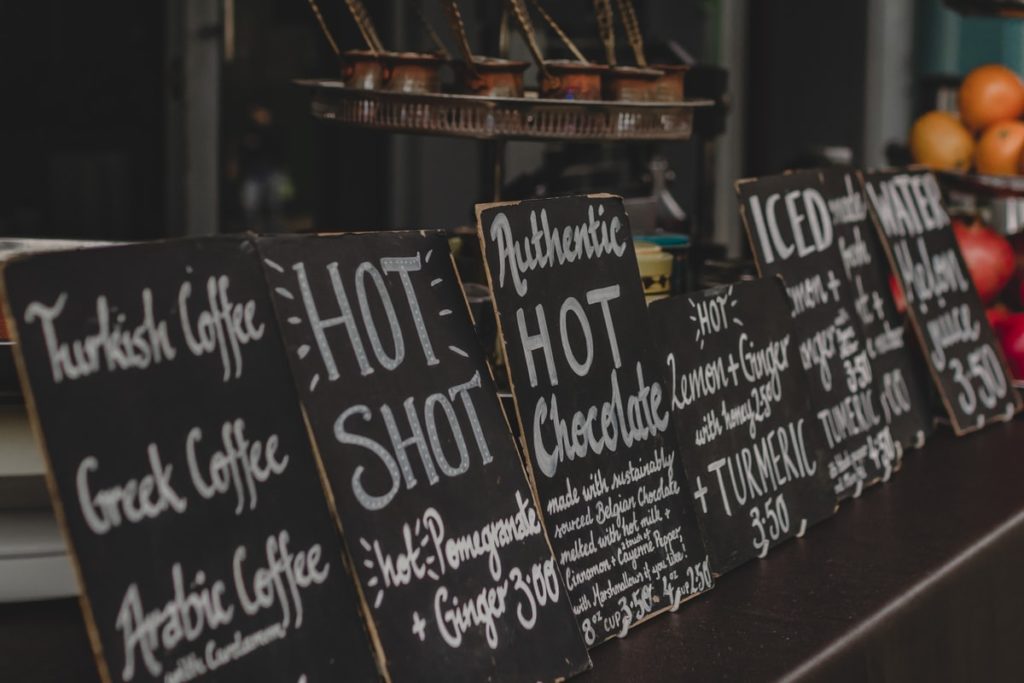 Turkish Coffee
Greek Coffee
Arabic Coffee
with Cardamom
HOT
SHOT
hot Pomegranate
+ Ginger 3.00
Authentic
HOT
Chocolate
made with sustainably
sourced Belgian Chocolate
melted with hot milk +
a touch of
Cinnamon + Cayenne Pepper,
with Marshmallows if you like!
8oz CUP 3.50 4oz 2.50
HOT
Lemon + Ginger
with honey 2.50
+ TURMERIC
3.50
ICED
3.50
TURMERIC
4.50
made
fresh
WATER
Melon
juice
3.50